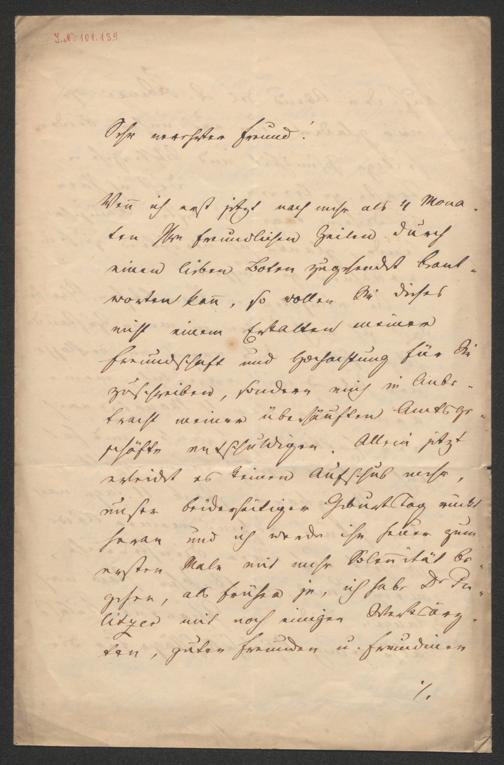 I.N. 101.139
Sehr verehrter Freund!
Wenn ich erst jetzt nach mehr als 4 Mona-
ten Ihre freundlichen Zeilen durch
einen lieben Boten zugesendet beant-
worten kann, so wollen Sie dieses
nicht einem Erkalten meiner
Freundschaft und Hochachtung für Sie
zuschreiben, sondern mich in Anbe-
tracht meiner überhäuften Amtsge-
schäfte entschuldigen. Allein jetzt
erleidet es keinen Aufschub mehr,
unser beiderseitiger Geburtstag rückt
heran und ich werde ihn heuer zum
ersten Male mit mehr Solennität be-
gehen, als früher je, ich habe Dr Pu-
litzer mit noch einigen
ten, guten Freunden u. Freundinen
./.